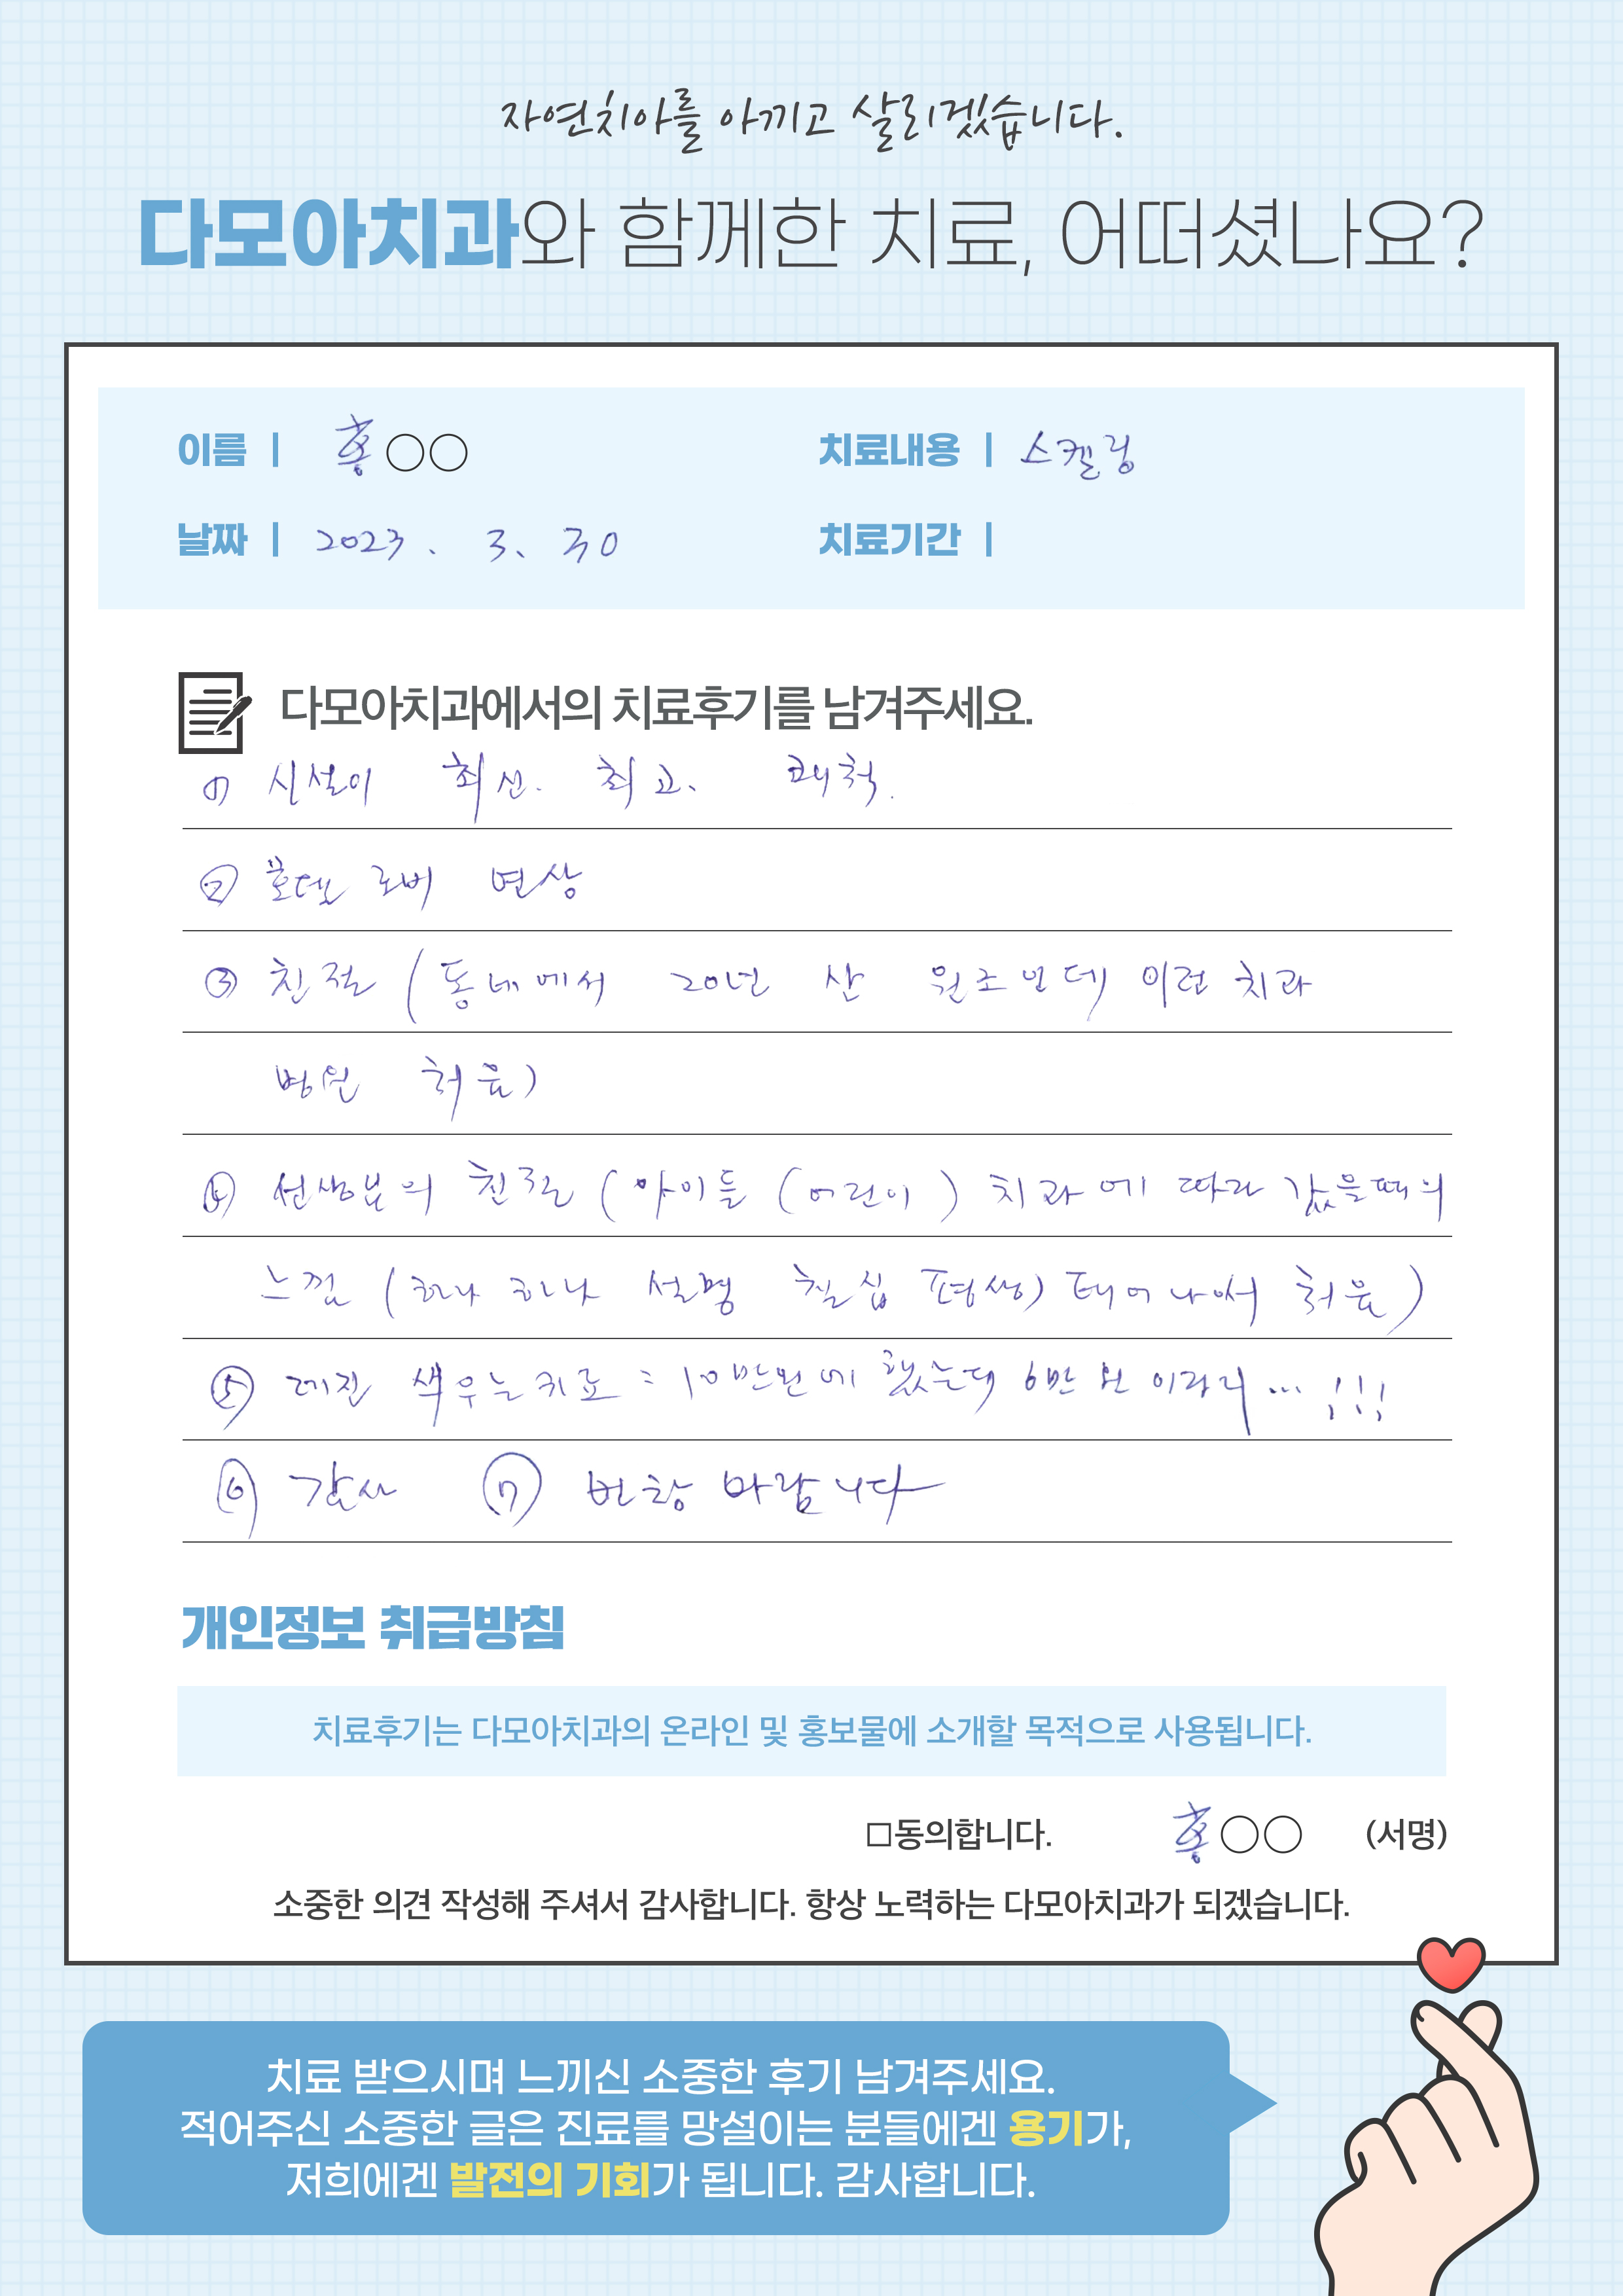 자연치아를 아끼고 살리겠습니다.
다모아치과와 함께한 치료, 어떠셨나요?
이름 | 홍○○
치료내용 | 스켈링
날짜 | 2023. 3. 30
치료기간 |
다모아치과에서의 치료후기를 남겨주세요.
① 시설이 최신. 최고. 쾌척.
② 호텔 로비 연상
③ 친절 (동네에서 20년 산 원조인데 이런 치과
병원 처음)
④ 선생님의 친절 (아이들 (어린이) 치과에 따라 갔을때의
느낌 (하나하나 설명 칠십 평생) 태어나서 처음)
⑤ 레진 때우는 치료 = 10만원에 했는데 6만원이라니... !!!
⑥ 감사 ⑦ 번창 바랍니다
개인정보 취급방침
치료후기는 다모아치과의 온라인 및 홍보물에 소개할 목적으로 사용됩니다.
□동의합니다. 홍○○ (서명)
소중한 의견 작성해 주셔서 감사합니다. 항상 노력하는 다모아치과가 되겠습니다.
치료 받으시며 느끼신 소중한 후기 남겨주세요.
적어주신 소중한 글은 진료를 망설이는 분들에겐 용기가,
저희에겐 발전의 기회가 됩니다. 감사합니다.